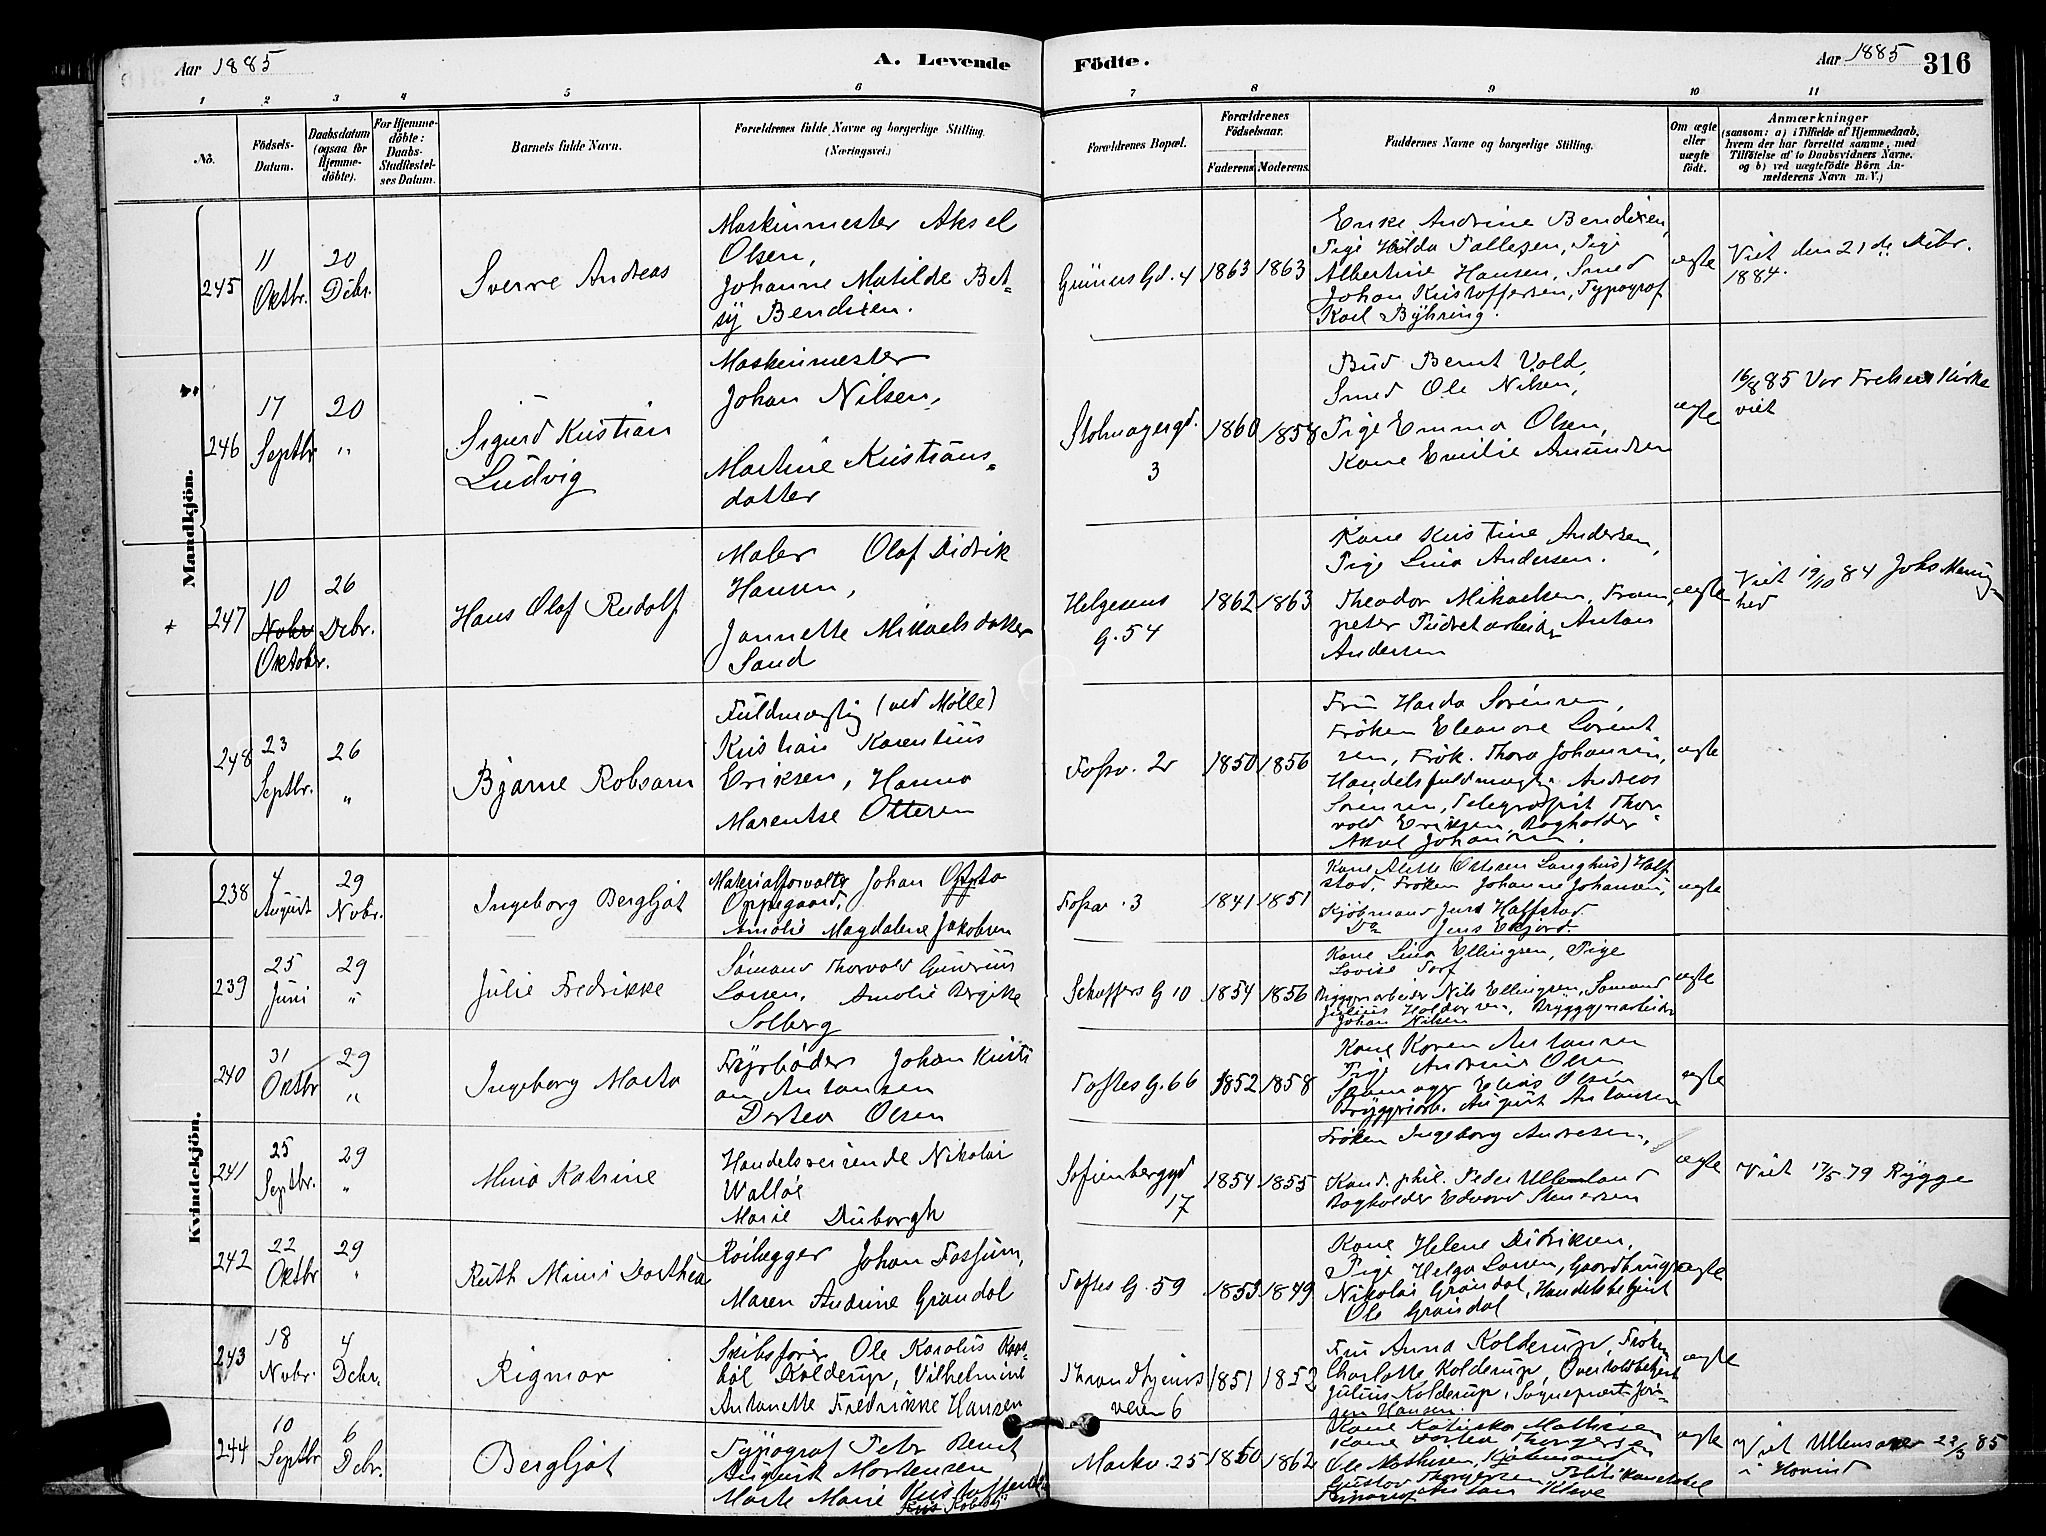 Aar 1885
A. Levende
Födte.
Aar 1885
316
1 2 3 4 5 6 7 8 9 10 11
No.
Födsels-
Datum.
Daabsdatum
(ogsaa for
Hjemme-
döbte).
For Hjemme-
döbte:
Daabs-
Stadfestel-
ses Datum.
Barnets fulde Navn.
Forældrenes fulde Navne og borgerlige Stilling.
(Næringsvei.)
Forældrenes Bopæl.
Forældrenes
Födselsaar.
Faderens. Moderens.
Faddernes Navne og borgerlige Stilling.
Om ægte
eller
uægte
födt.
Anmærkninger
(saasom: a) i Tilfælde af Hjemmedaab,
hvem der har forrettet samme, med
Tilföielse af to Daabsvidners Navne.
og b) ved uægtefödte Börn An-
melderens Navn m. V.)
Mandkjön.
245
11
Oktbr.
20
Dcbr.
Sverre Andreas
Maskinmester Aksel
Olsen,
Johanne Matilde Bet-
sy Bendixen.
Grünersgd. 4
1863 1863
Enke Andrine Bendixen,
Pige Hilda Tallezen, Pige
Albertine Hansen, Smed
Johan Kristoffersen, Typograf
Karl Byhring.
ægte
Viet den 21de Dcbr.
1884.
246
17
Septbr
20
"
Sigurd Kristian
Ludvig
Maskinmester
Johan Nilsen,
Martine Kristians-
datter
Stolmagergd.
3
1860 1858
Bud Bernt Vold,
Smed Ole Nilsen,
Pige Emma Olsen,
Kone Emilie Amundsen
ægte
16/8 85 Vor Frelsers Kirke
viet
+
247
10
Nobr
Oktobr.
26
Dcbr.
Hans Olaf Rudolf
Maler Olaf Didrik
Hansen,
Jannette Mikaelsdatter
Sand
Helgesens
G. 54
1862 1863
Kone Kristine Andersen,
Pige Lina Andersen.
Theodor Mikaelsen,
Anton
Andersen
ægte
Viet 19/10 84 Johs Menig-
hed
248
23
Septbr.
26
"
Bjarne Robsarn
Fuldmægtig (ved Mölle)
Kristian Karenlius
Eriksen, Hanna
Marentse Ottesen
Fossv. 2
1850 1856
Fru Harda Sörensen,
Fröken Eleanore Lorent
sen, Frök. Thora Johansen,
Handelsfuldmægtig Andreas
Sorensen, Telegrafist Thor-
vald Eriksen, Bogholder
Aksel Johansen.
ægte
Kvindekjön.
238
4
August
29
Nvbr.
Ingeborg Bergljot
Materialforvalter Johan
Oppegaard,
Amalie Magdalene Jakobsen
Fossv. 3
1841 1851
Kone Alette (Ottesen Langhus) Half
stad, Fröken Johanne Johansen,
Kjöbmand Jens Halfstad.
Do Jens Ekjord.
ægte
239
25
Juni
29
"
Julie Fredrikke
Sömand Thorvald Gudrius
Larsen, Amalie Birgitte
Solberg
Schoffers G 10
1854 1856
Kone Lina Ellingsen, Pige
Lovise Torf
Bryggeriarbeider Nils Ellingsen, Sömand
Julius Haldorsen, Bryggeriarbeider
Johan Nilsen
ægte
240
31
Oktbr
29
"
Ingeborg Marta
Fyrböder Johan Kristi
an Antonsen
Dortea Olsen
Toftes G. 66
1852 1858
Kone Karen Antonsen
Pige Andrine Olsen
Skomager Elias Olsen
Bryggeriarb. August Antonsen
ægte
241
25
Septbr.
29
"
Mina Katrine
Handelsreisende Nikolai
Wallöe
Marie Duborgh
Sofienberggd
17
1854 1855
Fröken Ingeborg Andresen,
Kand. phil. Peder Ullensand
Bogholder Edvard Stenersen
ægte
Viet 17/5 79 Rygge
242
22
Oktbr
29
"
Ruth Mimi Dorthea
Rörlægger Johan Fossum,
Maren Andrine Gröndal
Toftes G. 59
1853 1849
Kone Helene Didriksen,
Pige Helga Larsen, Gaardbruger
Nikolai Gröndal, Handelsbetjent
Ole Gröndal
ægte
243
18
Nvbr.
4
Dcbr.
Rigmor
Skibsförer Ole Karolus Kors-
böl Kolderup, Vilhelmine
Antonette Fredrikke Hansen
Throndhjems
veien 6
1851 1852
Fru Anna Kolderup, Fröken
Charlotte Kolderup, Overtoldbetjent
Julius Kolderup, Sogneprest Jör-
gen Hansen.
ægte
244
10
Septbr
6
Dcbr.
Bergljot
Typograf Peter Bernt
August Mortensen
Marte Marie Kristoffersdtr
Markv. 25
1860 1862
Kone Katinka Mathisen
Kone Dortea Thorgersen
Ole Mathisen, Kjöbmand
Gustav Thorgersen, Politikonstabel
Kleve
ægte
Viet Ullensaker 22/3 85
i Hovind